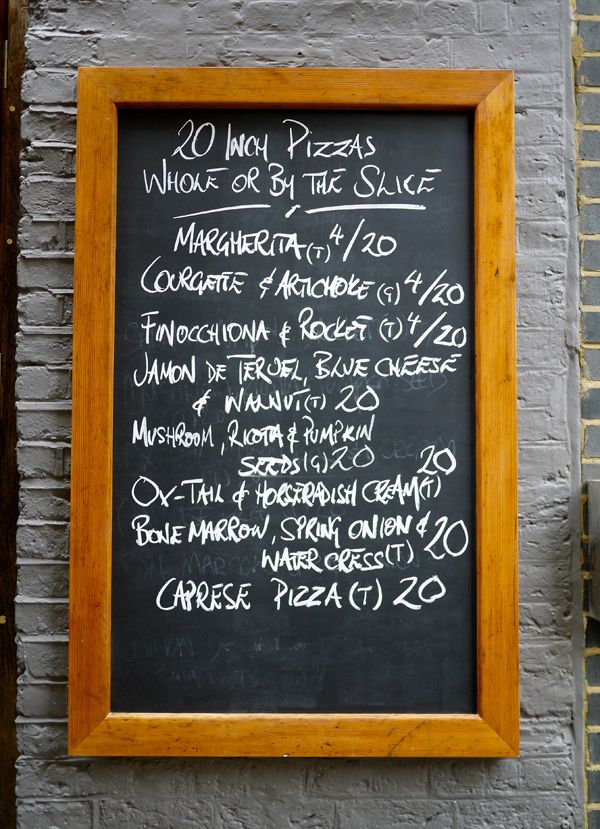 20 INCH PIZZAS
WHOLE OR BY THE SLICE
MARGHERITA (T) 4/20
COURGETTE & ARTICHOKE (G) 4/20
FINOCCHIONA & ROCKET (T) 4/20
JAMON DE TERUEL, BLUE CHEESE
& WALNUT (T) 20
MUSHROOM, RICOTA & PUMPKIN
SEEDS (G) 20
20
OX-TAIL & HORSERADISH CREAM (T)
BONE MARROW, SPRING ONION & 20
WATER CRESS (T)
CAPRESE PIZZA (T) 20